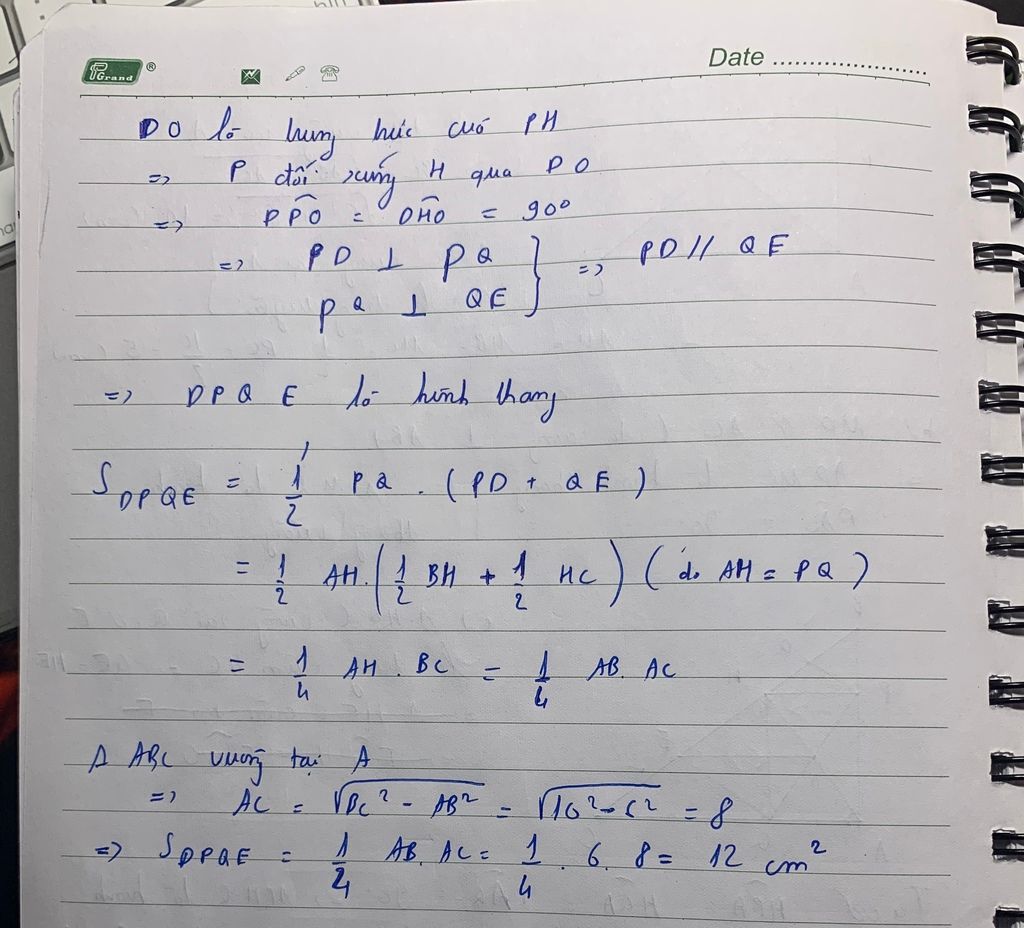 PGrand ®
Date ........................
DO là trung trực của PH
=> P đối xứng H qua DO
=> DPO = DHO = 90°
=> PD ⊥ PQ
PQ ⊥ QE } => PD // QE
=> DPQE là hình thang
S_DPQE = 1/2 PQ . (PD + QE)
= 1/2 AH. (1/2 BH + 1/2 HC) (do AH = PQ)
= 1/4 AH . BC = 1/4 AB. AC
Δ ABC vuông tại A
=> AC = √(BC² - AB²) = √(10² - 6²) = 8
=> S_DPQE = 1/4 AB. AC = 1/4 . 6. 8 = 12 cm²